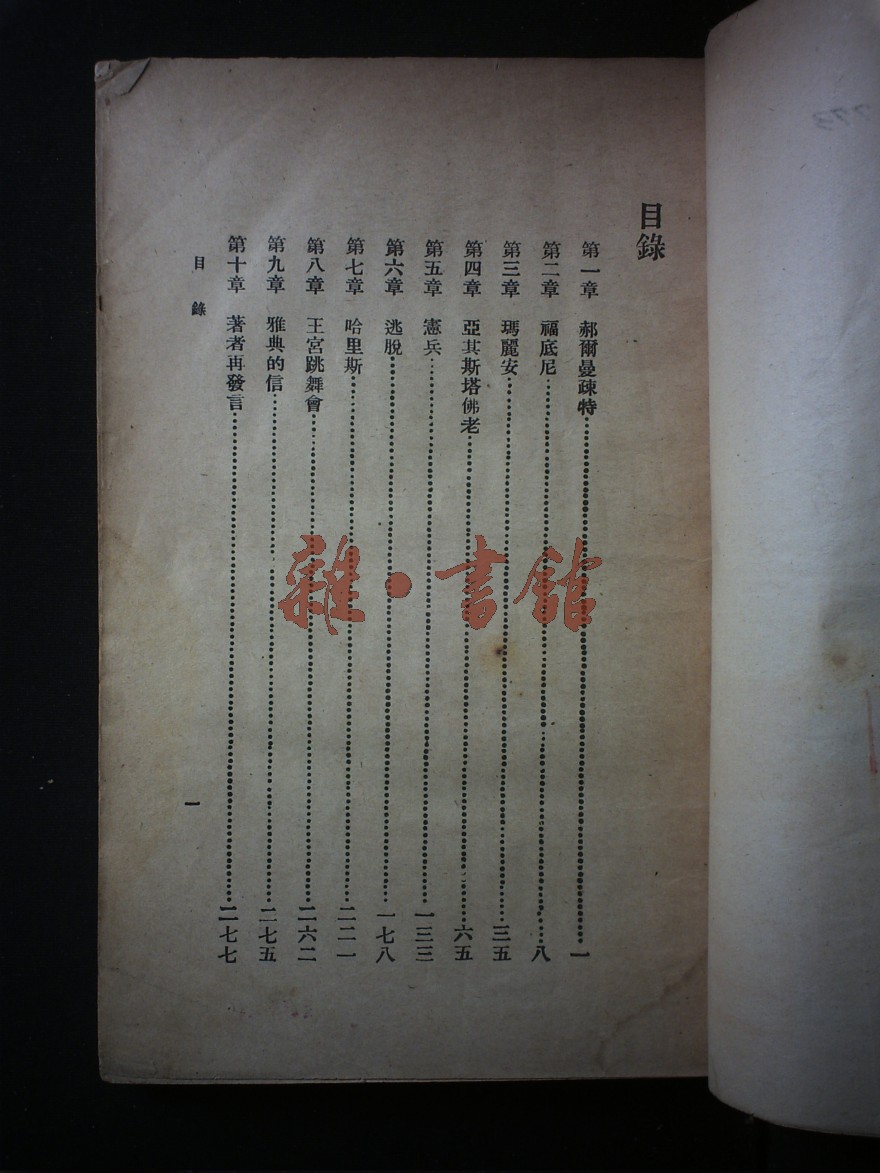 目錄
第一章 郝爾曼疎特 一
第二章 福底尼 八
第三章 瑪麗安 三五
第四章 亞其斯塔佛老 六五
第五章 憲兵 一三三
第六章 逃脫 一七八
第七章 哈里斯 二二一
第八章 王宮跳舞會 二六二
第九章 雅典的信 二七五
第十章 著者再發言 二七七
目錄 一
雜·書館
773